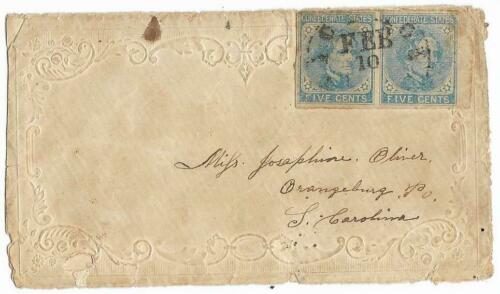 CONFEDERATE STATES CONFEDERATE STATES
FEB
10
FIVE CENTS FIVE CENTS
Miss. Josephine. Oliver.
Orangeburg Po.
S. Carolina